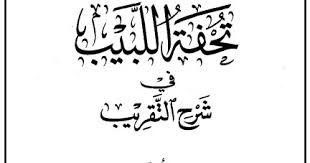 تُحْفَةُ اللَّبِيبِ
فِي
شَرْحِ التَّقْرِيبِ